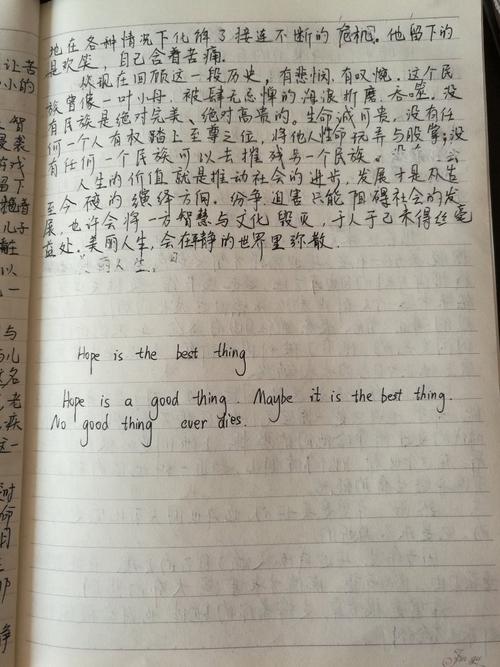 地在各种情况下化解了接连不断的危机。他留下的
是欢笑,自己含着苦痛。
从现在回顾这一段历史,有悲悯,有叹惋。这个民
族曾像一叶小舟,被肆无忌惮的海浪折磨、吞噬。没
有民族是绝对完美、绝对高贵的。生命诚可贵,没有任
何一个人有权踏上至尊之位,将他人性命玩弄与股掌;没
有任何一个民族可以去推残另一个民族。
人生的价值就是推动社会的进步,发展才是从古
至今 硬的演绎方向。纷争、迫害只能阻碍社会的发
展,也许会将一方智慧与文化毁灭,于人于己未得丝毫
益处。美丽人生,会在平静的世界里弥散。
丽人生,
Hope is the best thing
Hope is a good thing. Maybe it is the best thing.
No good thing ever dies.
让苦
小的
智
袭
游戏
留下
儿子
以
一
与
儿
名
老
疾
这一
时
命
静